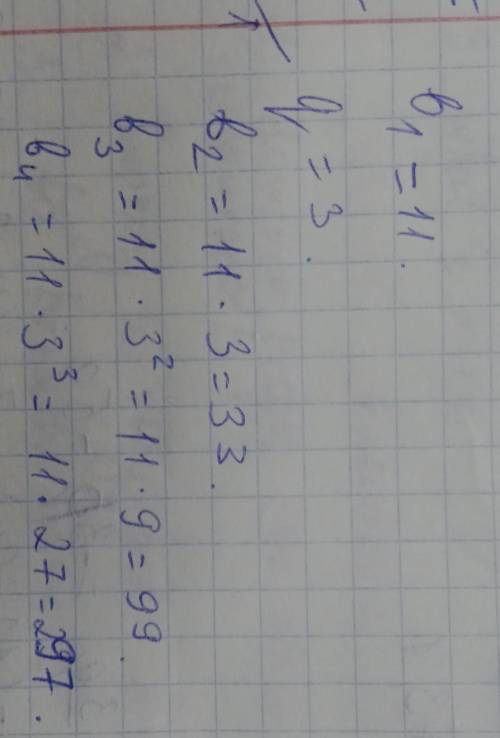 b₁ = 11.
q = 3.
b₂ = 11 · 3 = 33.
b₃ = 11 · 3² = 11 · 9 = 99.
b₄ = 11 · 3³ = 11 · 27 = 297.